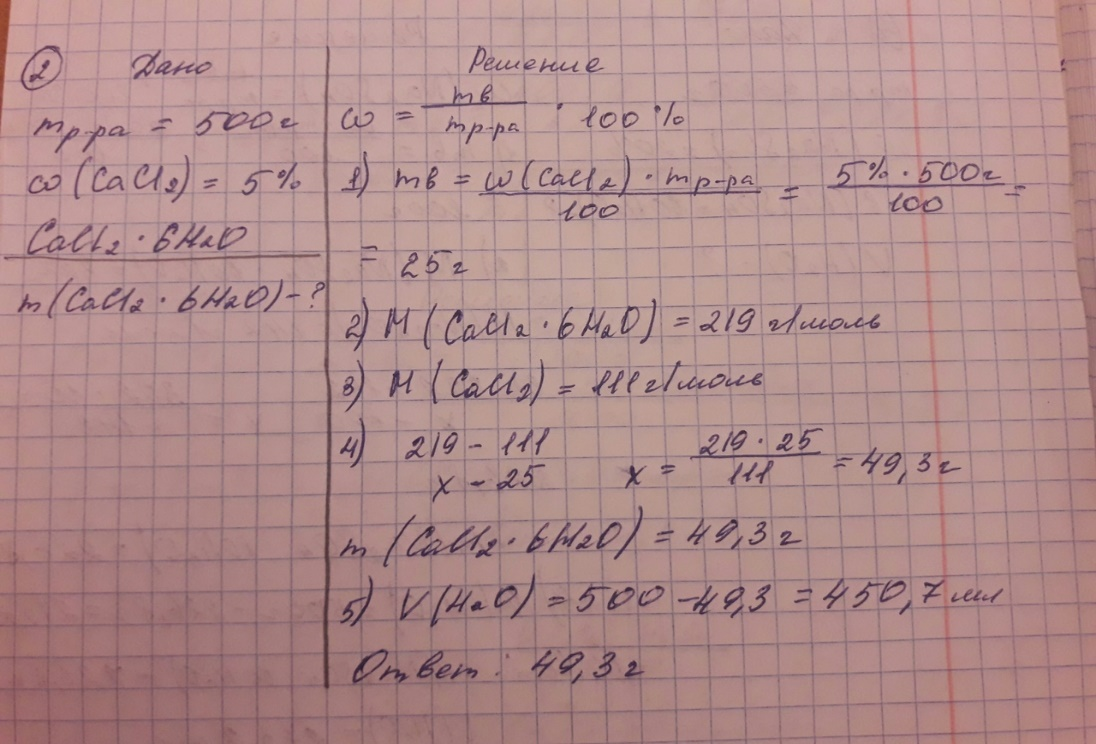 ② Дано
mр-ра = 500г
ω (CaCl₂) = 5%
CaCl₂ · 6H₂O
m (CaCl₂ · 6H₂O) - ?
Решение
ω = mв / mр-ра · 100 %
1) mв = ω (CaCl₂) · mр-ра / 100 = 5% · 500г / 100 =
= 25 г
2) M (CaCl₂ · 6H₂O) = 219 г/моль
3) M (CaCl₂) = 111 г/моль
4) 219 - 111
x - 25 x = 219 · 25 / 111 = 49,3 г
m (CaCl₂ · 6H₂O) = 49,3 г
5) V (H₂O) = 500 - 49,3 = 450,7 мл
Ответ : 49,3 г